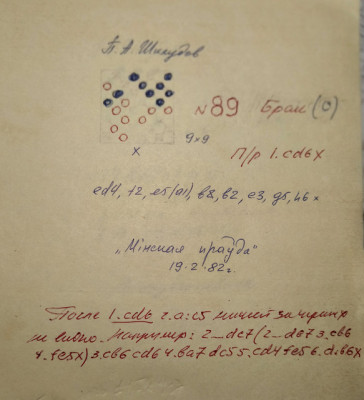 П. А. Шклудов
N 89 Бран (с)
9x9
x
П/р 1.cd6x
ed4, f2, e5(a1), b8, b2, e3, g5, h6 x
„Мінская праўда"
19.2.82г.
После 1.cd6 г.а:c5 ничьей за чёрных
не видно. Например: 2...dc7(2...de7 3.cb6
4.fe5x)3.cb6 cd6 4.ba7 dc5 5.cd4 fe5 6.d:b6x